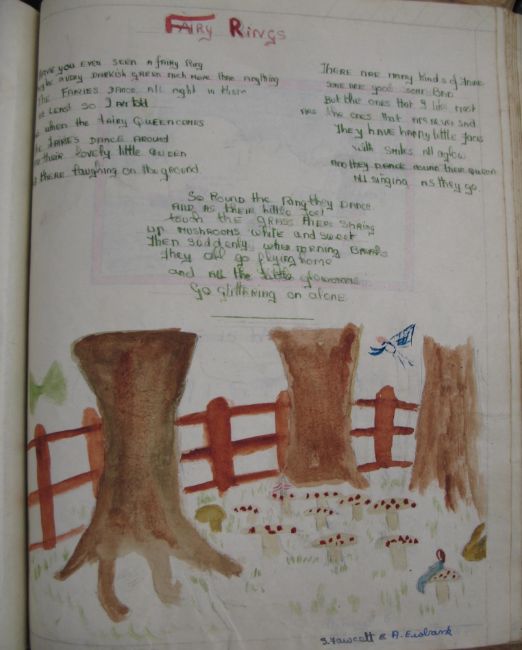 Fairy Rings
Have you ever seen a fairy Ring
a very darkish green much more than anything
The Fairies dance all night in them
At least so I am told
when the fairy Queen comes
The fairies dance around
their lovely little Queen
there laughing on the ground
There are many kinds of
some are good some Bad
But the ones that I like most
Are the ones that are never sad
They have happy little faces
with smiles all aglow
And they dance round their Queen
All singing as they go.
So Round the Ring they Dance
And as their little feet
touch the grass there spring
up mushrooms white and sweet
Then suddenly when morning Breaks
They all go flying home
and All the little glowworms
Go glittering on alone
S. Fawcett & A. Ewbank